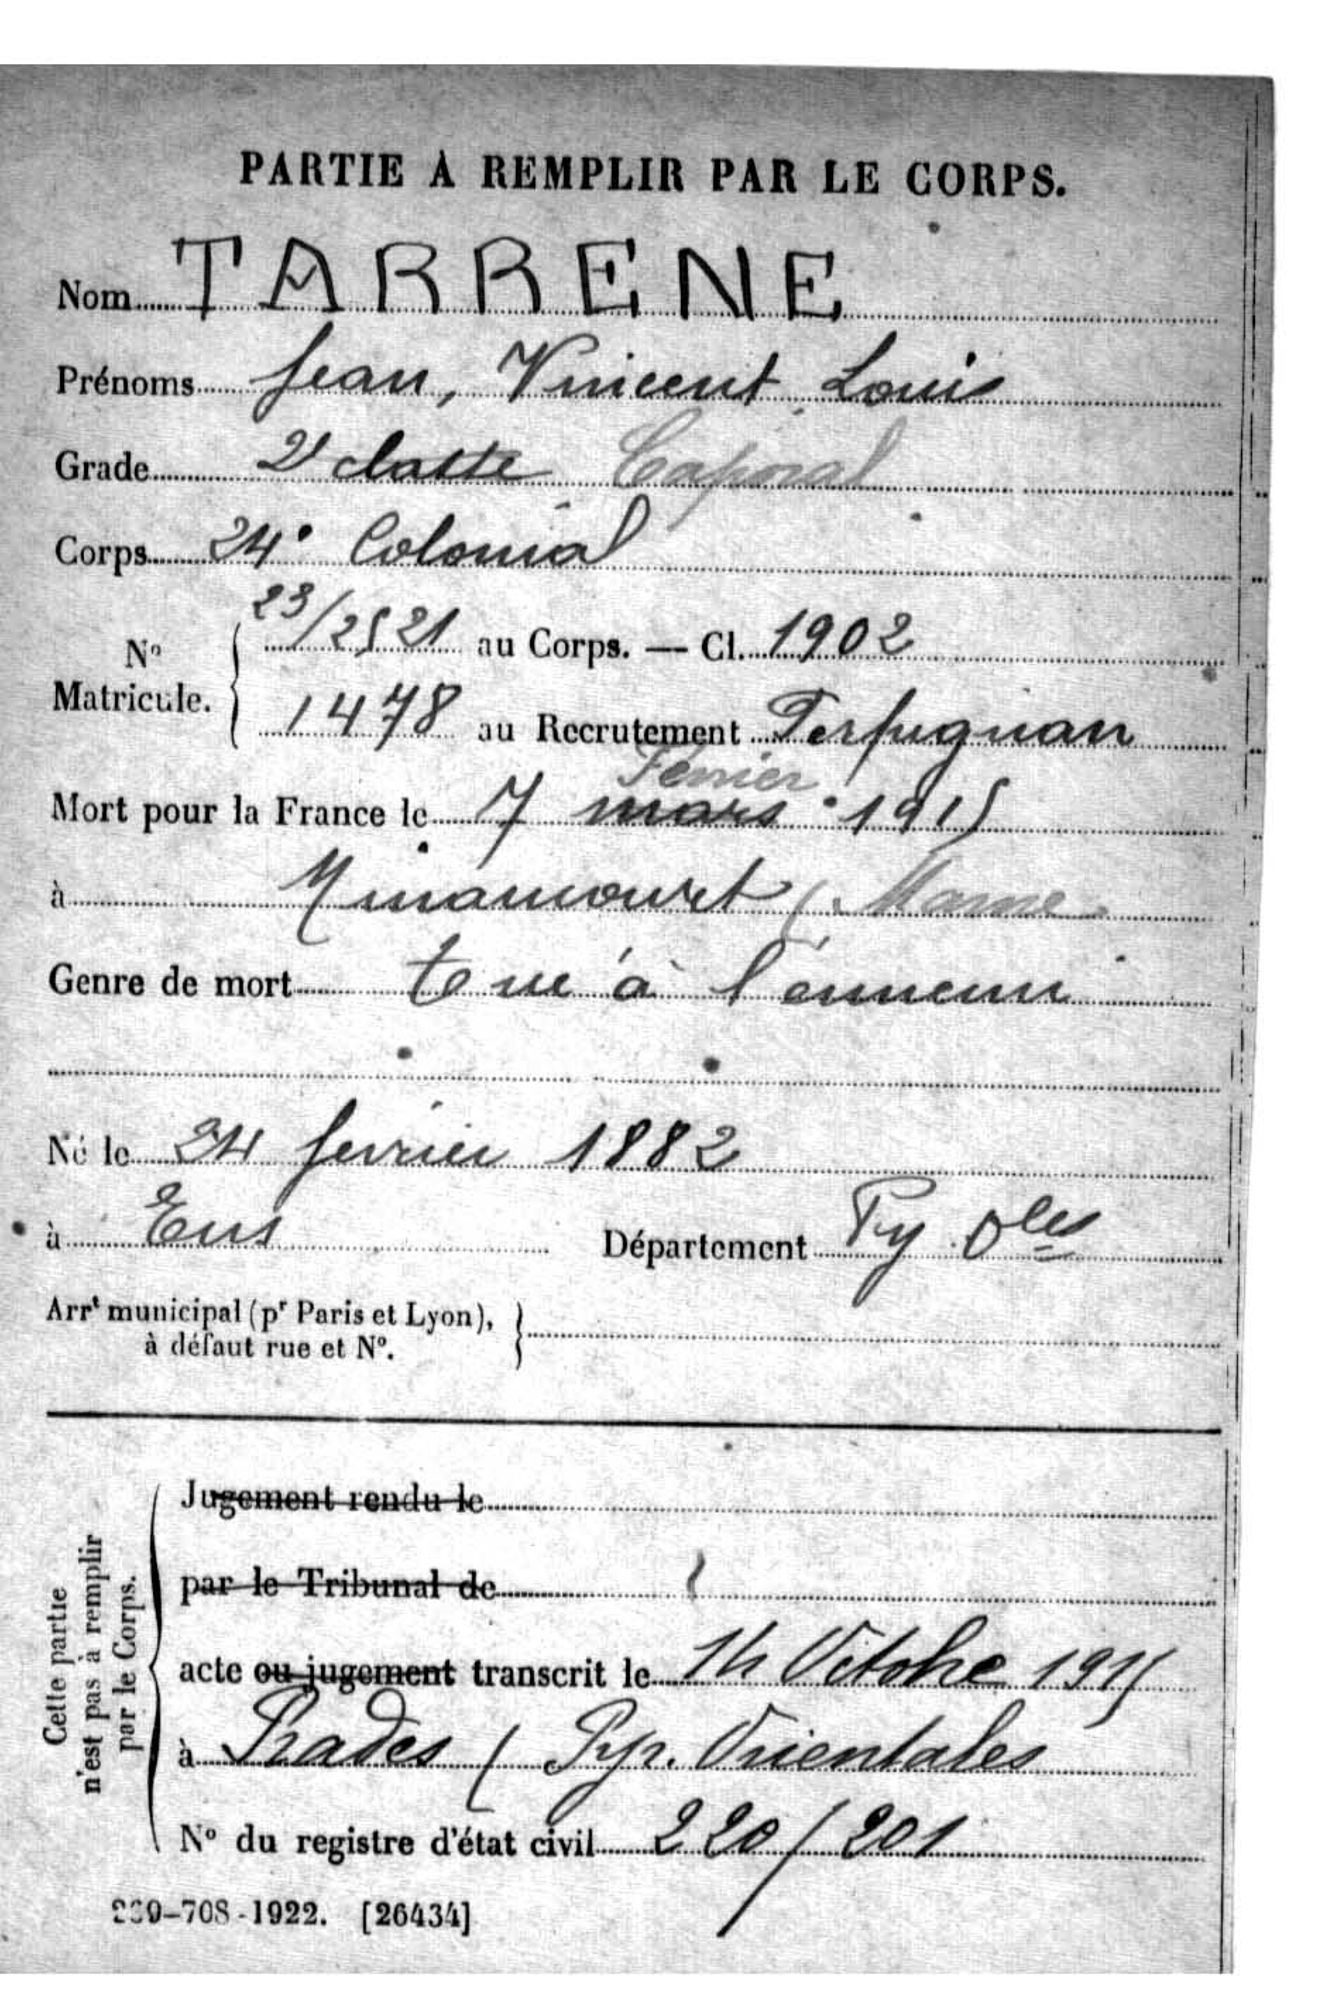 PARTIE À REMPLIR PAR LE CORPS.
Nom TARRENE
Prénoms Jean, Vincent Louis
Grade 2e classe Caporal
Corps 24e Colonial
23/2521 au Corps. — Cl. 1902
N° Matricule.
1478 au Recrutement Perpignan
Février
Mort pour la France le 7 mars 1915
à Minaucourt (Marne
Genre de mort tué à l'ennemi
Né le 24 fevrier 1882
à Eus Département Py Oles
Arrt municipal (pr Paris et Lyon),
à défaut rue et N°.
Cette partie
n'est pas à remplir
par le Corps.
Jugement rendu le
par le Tribunal de
acte ou jugement transcrit le 14 Octobre 1915
à Prades ( Pyr. Orientales
N° du registre d'état civil 220/201
-708-1922. [26434]